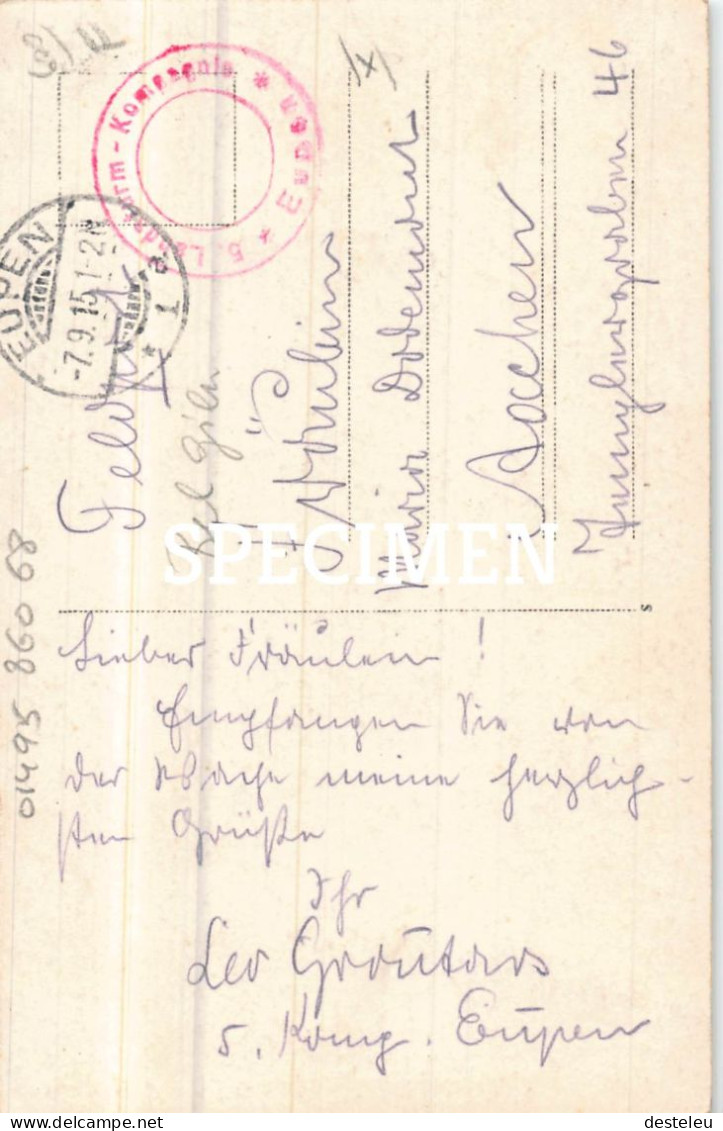 5. Landsturm-Kompagnie * Eupen *
EUPEN
-7.9.15.1-2N
* 1 a
Feldpost
Belgien
Fräulein
Maria
Aachen
46
SPECIMEN
Lieber Fräulein!
Empfangen Sie von
der Wache meine herzlich-
sten Grüße
Ihr
Leo
5. Komp. Eupen
01495 860 68
s
delcampe.net
desteleu